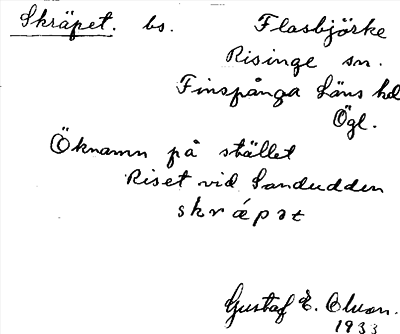 Skräpet. bs. Flasbjörke
Risinge sn.
Finspånga Läns hd
Ögl.
Öknamn på stället
Riset vid Sandudden
skrǽpət
Gustaf E. Olson.
1933